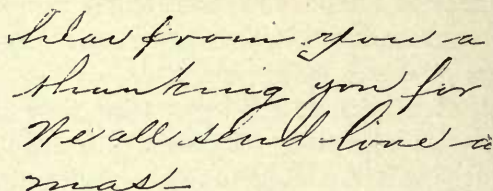 hear from you a
thanking you for
We all send love a
mas-